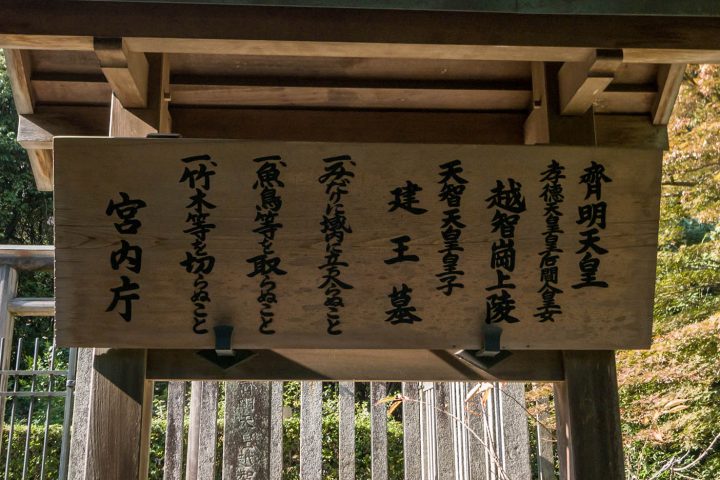 齊明天皇
孝徳天皇皇后間人皇女
越智崗上陵
天智天皇皇子
建王墓
一、みだりに域内に立入らぬこと
一、魚鳥等を取らぬこと
一、竹木等を切らぬこと
宮内庁